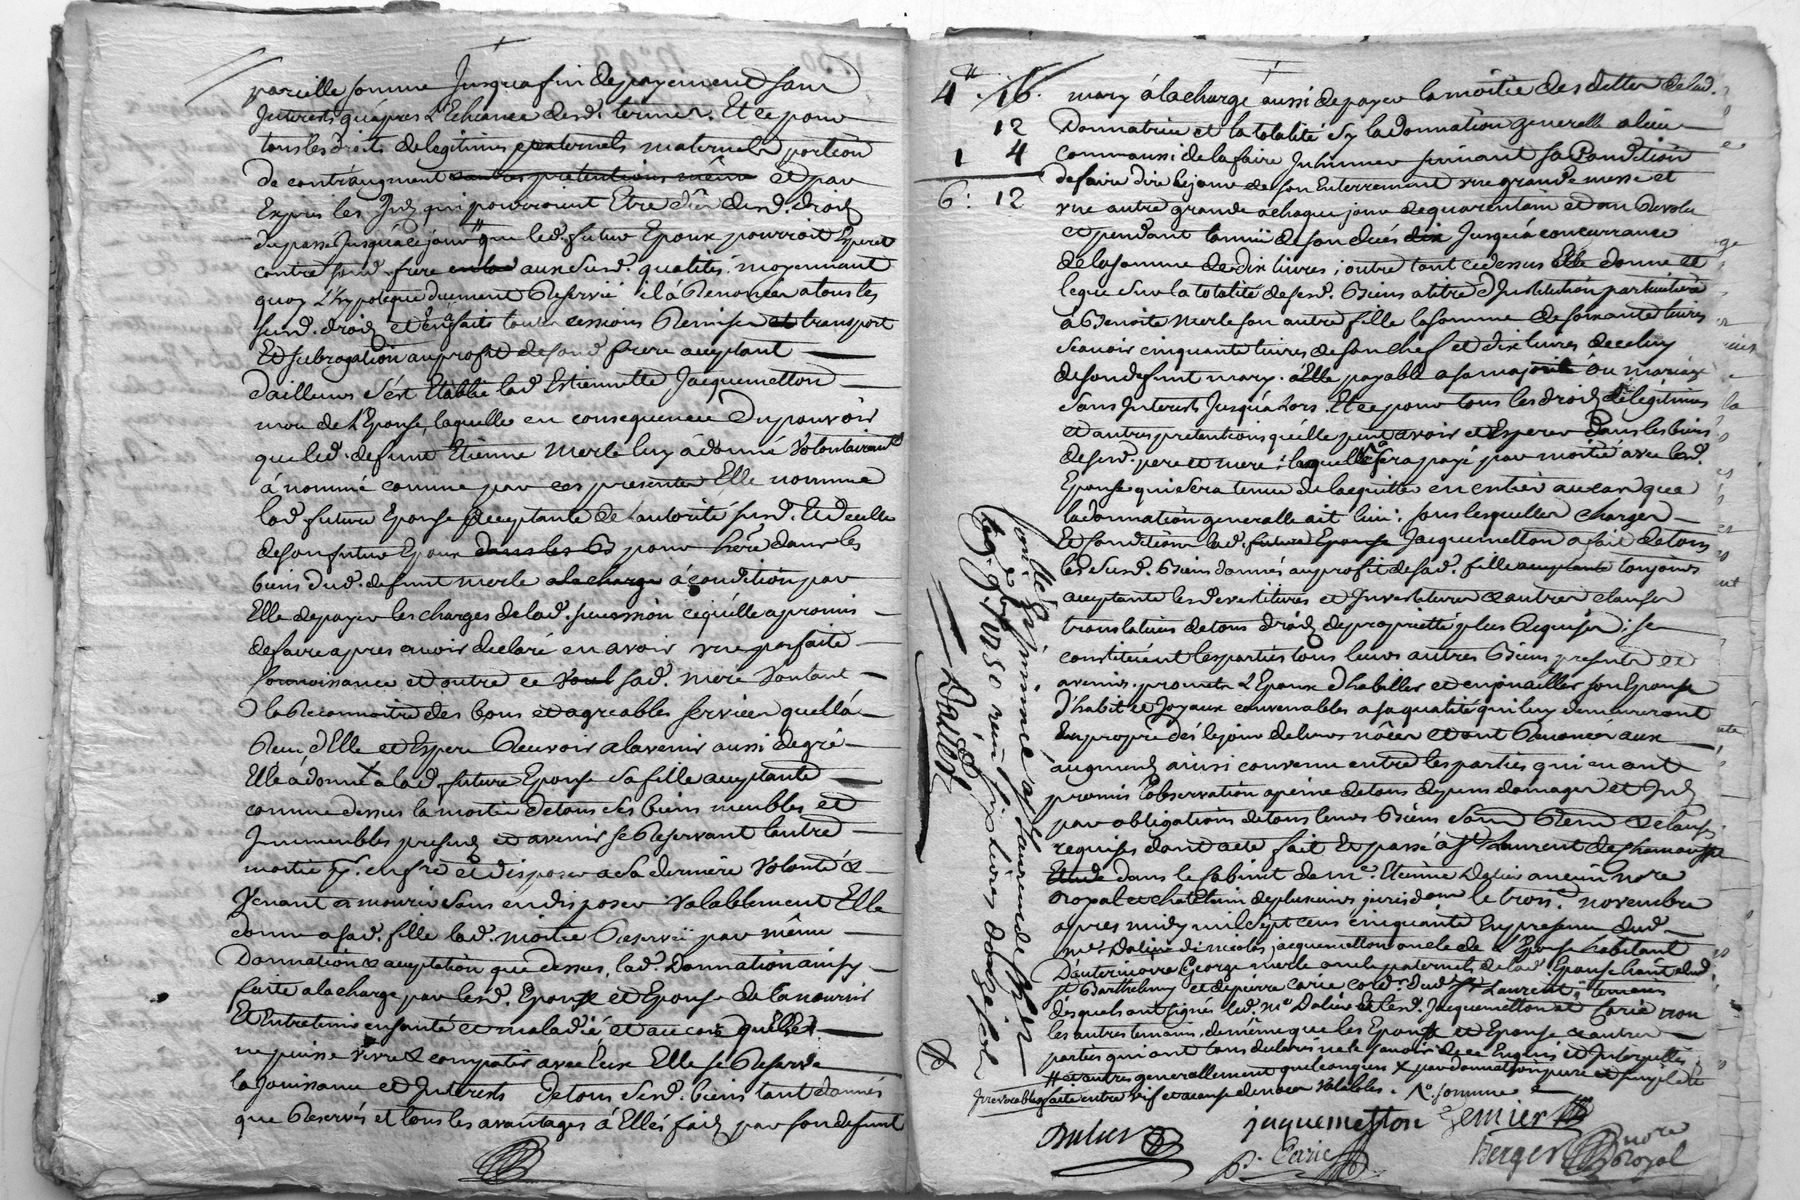 pareille somme Jusqua fin depayement sans
Interests qu'apres L'Echeance desd. termes. Et ce pour
tous les droits de legitimes paternels maternels portion
de contraugment autres pretentions même et par
Expres les Ints qui pourroient Etre dûs desd. droits
du passé Jusqu'à ce jour que led. futur Epoux pourroit Esperer
contre sond. frere aux susd. qualités. moyennant
quoy L'hypoteque duement Reservé il à Renoncé a tous les
susd. droits et en a fait toutes cessions Remises et transport
Et subrogation au profit de sond. frere acceptant
d'ailleurs s'est Etablie lad. Estiennette Jacquemetton
mere de L'Epouse, laquelle en consequence Dupouvoir
que led. defunt Etienne Merle luy à donné
à nommé comme par ces presentes Elle nomme
lad. future Epouse acceptante de L'autorité susd. Et de celle
de son futur Epoux dans les B pour here dans les
biens dud. defunt Merle a la charge à condition par
Elle de payer les charges de lad. succession ce qu'elle a promis
de faire apres avoir declaré en avoir une parfaite
connoissance et outre ce sad. mere voulant
la Reconnoitre des bons et agreables services quell à
Receu d'Elle et Espere Recevoir alavenir aussi de gré
Elle à donné x a lad. future Epouse sa fille acceptante
comme dessus la moitié de tous ses biens meubles et
Immeubles presents et avenir se Reservant l'autre
moitié pr. en disposer a sa derniere volonté &
Venant à mourir sans en disposer valablement Elle
donne a sad. fille lad. moitié Reservée par même
Donnation & acceptation que dessus, lad. Donnation ainsy
faite ala charge par lesd. Epoux et Epouse de la nourrir
Et Entretenir en santé et maladie et au cas quelle
ne puisse vivre & compatir avec Eux Elle se Reserve
la Jouissance et Interests De tous sesd. biens tant donnés
que Reservés et tous les avantages à Elle faits par son defunt
4tt. 16.
12
1 4
6: 12
mary à la charge aussi de payer la moitié des dettes de lad.
Donnatrice et la totalité sy la donnation generalle a lieu
comm aussi de la faire Inhumer suivant sa Condition
de faire dire le jour de son Enterrement une grande messe et
une autre grande a chaque jour de quarantain et an Revolu
et pendant l'année de son decés dix Jusqu'à concurrance
de la somme de dix livres; outre tout ce dessus Elle donne et
legue sur la totalité de sesd. Biens a titre d'Institution particuliere
à Benoite Merle son autre fille la somme de soixante livres
scavoir cinquante livres de son chef et dix livres de celuy
de son defunt mary. payable a sa majorité ou mariage
sans Interests Jusqu'a Lors. Et ce pour tous les droits de legitimes
et autres pretentions qu'elle peut avoir et Esperer Dans les biens
de sesd. pere et mere: laquelle sera payé par moitié avec lad.
Epouse qui sera tenue de l'acquitter en entier au cas que
la donnation generalle ait lieu: sous lesquelles charges
Et Condition lad. future Epouse Jacquemetton a fait de tous
les susd. Biens donnés au profit de sad. fille acceptante toujours
acceptante les devestitures et Investitures & autres clauses
translatives de tous droits de proprieté plus Requises: se
constituent les parties tous leurs autres Biens presents et
avenir. promets L'Epoux d'habiller et enjoüailler son Epouse
d'habits et Joyaux convenables a sa qualité qui luy demeureront
En propre dés le jour de leurs nôces et ont Renoncé aux
augments ainsi convenu entre les parties qui en ont
promis l'observation a peine de tous depens domages et Ints
par obligations de tous leurs Biens Soum. Renon. & clauses
requises dont acte fait Et passé à St Laurent de Chamousset
Etude dans le Cabinet de me. Etienne Dalier ancien nore
Royal et chatelain de plusieurs jurisdons le trois.e novembre
apres midy mil sept cens cinquante En presence dud.
me. Dalier de nicolas jacquemetton oncle de L'Epouse habitant
George merle oncle paternel de lad. Epouse hant aud.
St Barthelemy et de pierre Carie dud. St Laurent temoins
desquels ont signés led. me Dalier & lesd. Jacquemetton et Carie non
les autres temoins de même que les Epoux et Epouse & autres
parties qui ont tous declarés ne le scavoir de ce Enquis et Interpellés
# et autres generallement quelconques x par donnation pure et simple &
Irrevocable faite entre vif et a cause de noces valables. Ro. somme
Con.llé Et insinué a St Laurent de Cham
ce 9 9bre 1750 reçu six livres douze sols
Daudé
Dalier jaquemetton Gemier
P. Carie Berger nore Royal